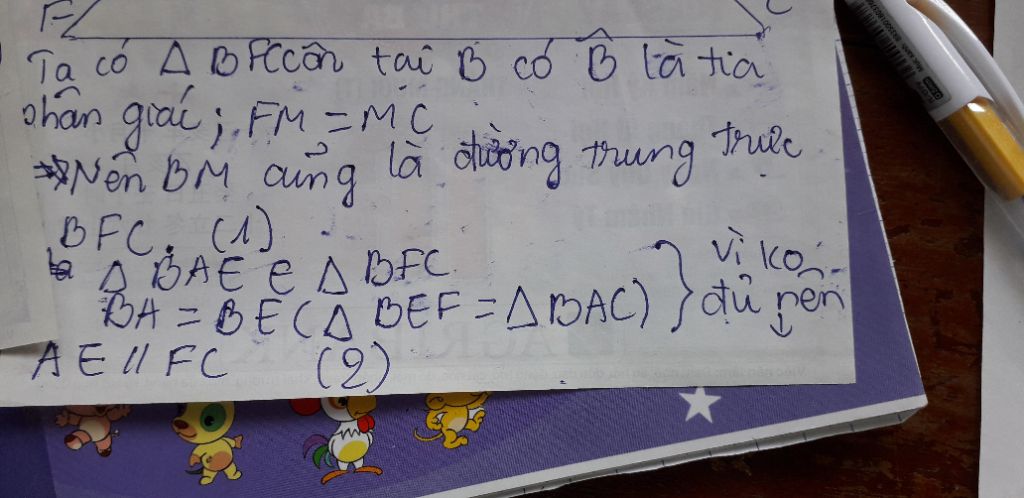 F C
Ta có Δ BFC cân tại B có B̂ là tia
phân giác; FM = MC
=> Nên BM cũng là đường trung trực
BFC. (1)
Δ BAE ∈ Δ BFC
BA = BE (Δ BEF = Δ BAC) } vì ko đủ nên ↓
AE // FC (2)